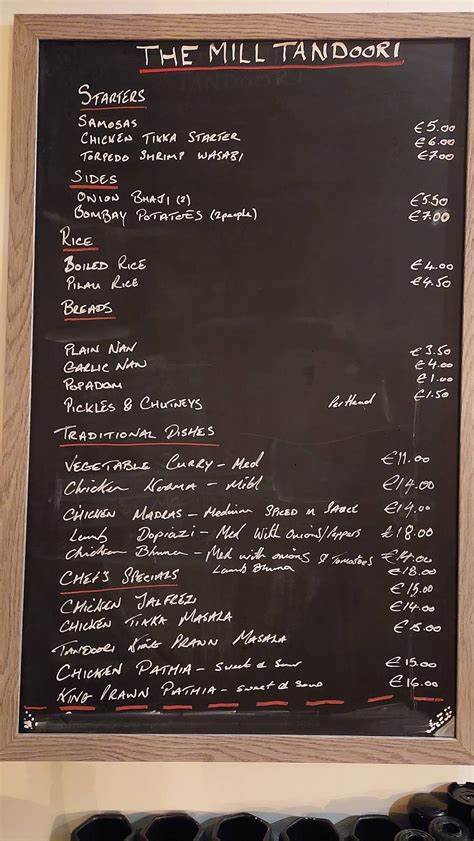 THE MILL TANDOORI
STARTERS
SAMOSAS €5.00
CHICKEN TIKKA STARTER €6.00
TORPEDO SHRIMP WASABI €7.00
SIDES
ONION BHAJI (2) €5.50
BOMBAY POTATOES (2people) €7.00
RICE
BOILED RICE €4.00
PILAU RICE €4.50
BREADS
PLAIN NAN €3.50
GARLIC NAN €4.00
POPADOM €1.00
PICKLES & CHUTNEYS Per Head €1.50
TRADITIONAL DISHES
VEGETABLE CURRY - Med €11.00
Chicken KORMA - Mild €14.00
CHICKEN MADRAS - Medium SPICED IN SAUCE €14.00
Lamb DOPIAZI - Med WITH ONIONS/Peppers €18.00
Chicken Bhuna - Med with onions & Tomatoes €14.00
Lamb Bhuna €18.00
CHEF'S SPECIALS
CHICKEN JALFREZI €15.00
CHICKEN TIKKA MASALA €14.00
TANDOORI KING PRAWN MASALA €15.00
CHICKEN PATHIA - Sweet & Sour €15.00
KING PRAWN PATHIA - Sweet & Sour €16.00